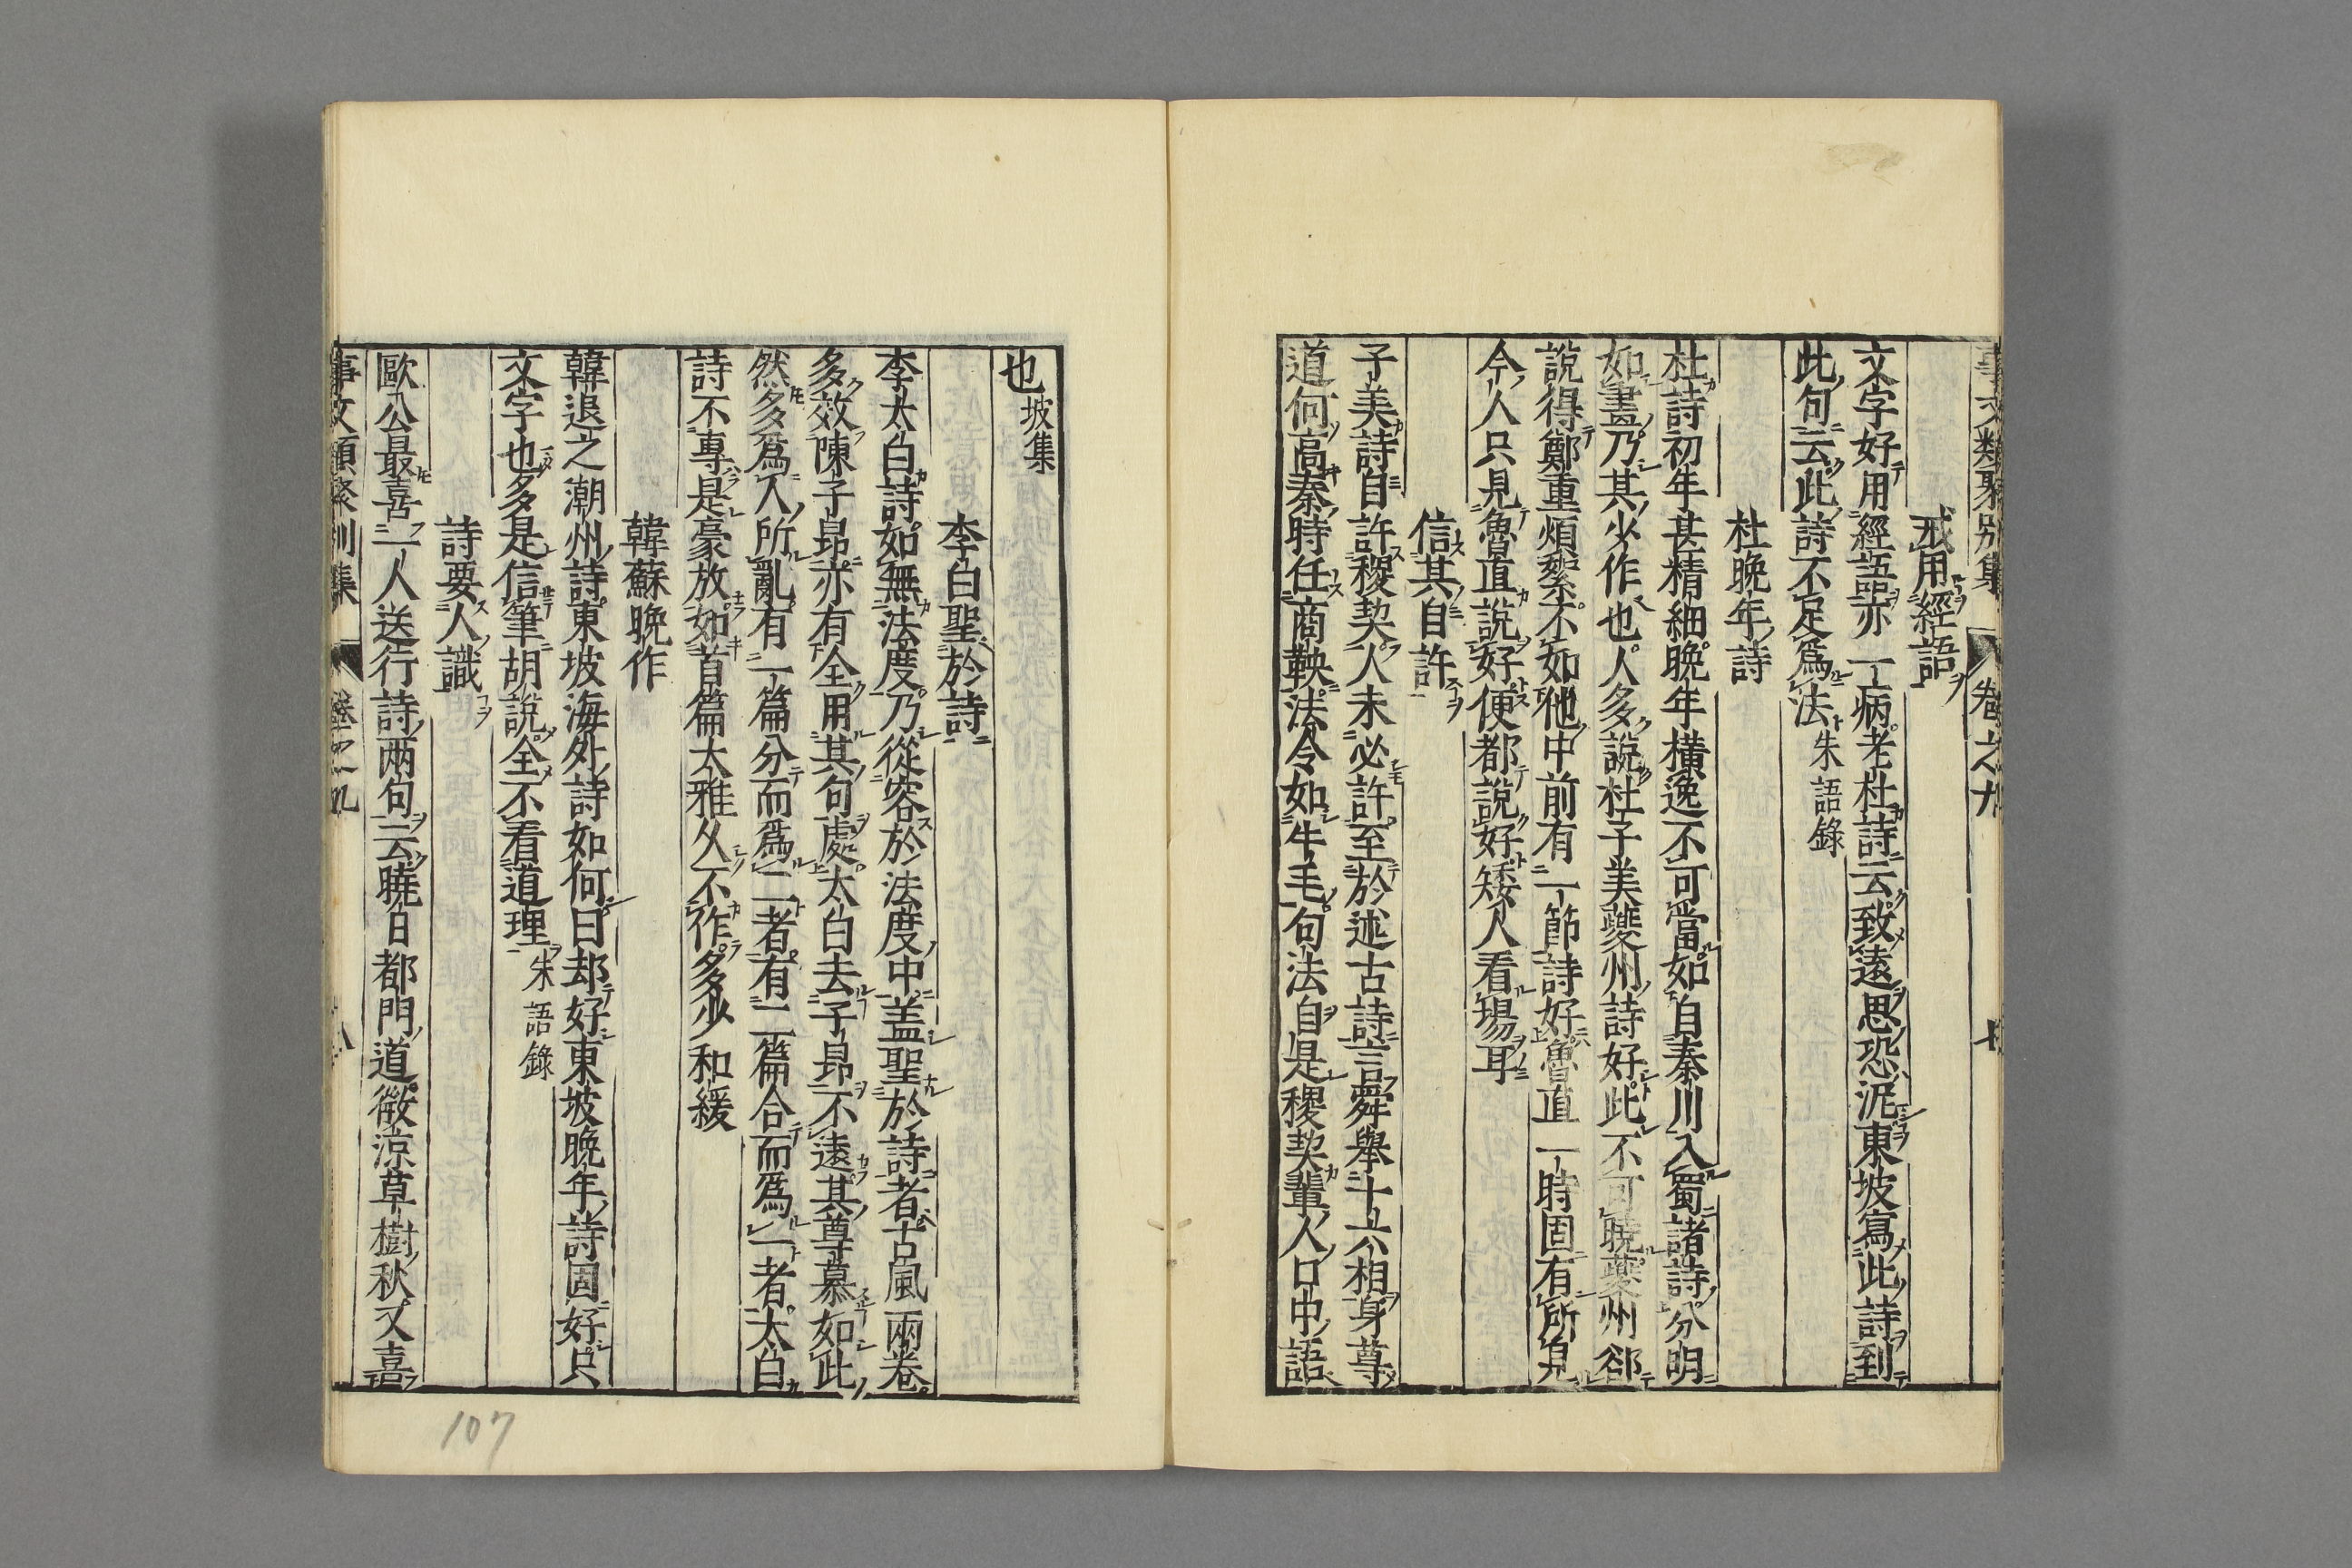 事文類聚别集 卷之九 七
戒用經語
文字好用經語亦一病老杜詩云致遠思恐泥東坡寫此詩到
此句云此詩不足爲法朱語錄
杜晚年詩
杜詩初年甚精細晚年橫逸不可當如自秦川入蜀諸詩分明
如畫乃其少作也人多說杜子美夔州詩好此不可曉夔州郤
說得鄭重煩絮不如他中前有一節詩好魯直一時固有所見
今人只見魯直說好便都說好矮人看場耳
信其自許
子美詩自許稷契人未必許至於述古詩言舜舉十六相身尊
道何高秦時任商鞅法令如牛毛句法自是稷契輩人口中語
也坡集
李白聖於詩
李太白詩如無法度乃從容於法度中盖聖於詩者古風兩卷
多效陳子昂亦有全用其句處太白去子昂不遠其尊慕如此
然多爲人所亂有一篇分而爲二者有二篇合而爲一者太白
詩不專是豪放如首篇大雅久不作多少和緩
韓蘇晚作
韓退之潮州詩東坡海外詩如何曰却好東坡晚年詩固好只
文字也多是信筆胡說全不看道理朱語錄
詩要人識
歐公最喜一人送行詩兩句云曉日都門道微涼草樹秋又喜
事文類聚别集 卷之九 八
107